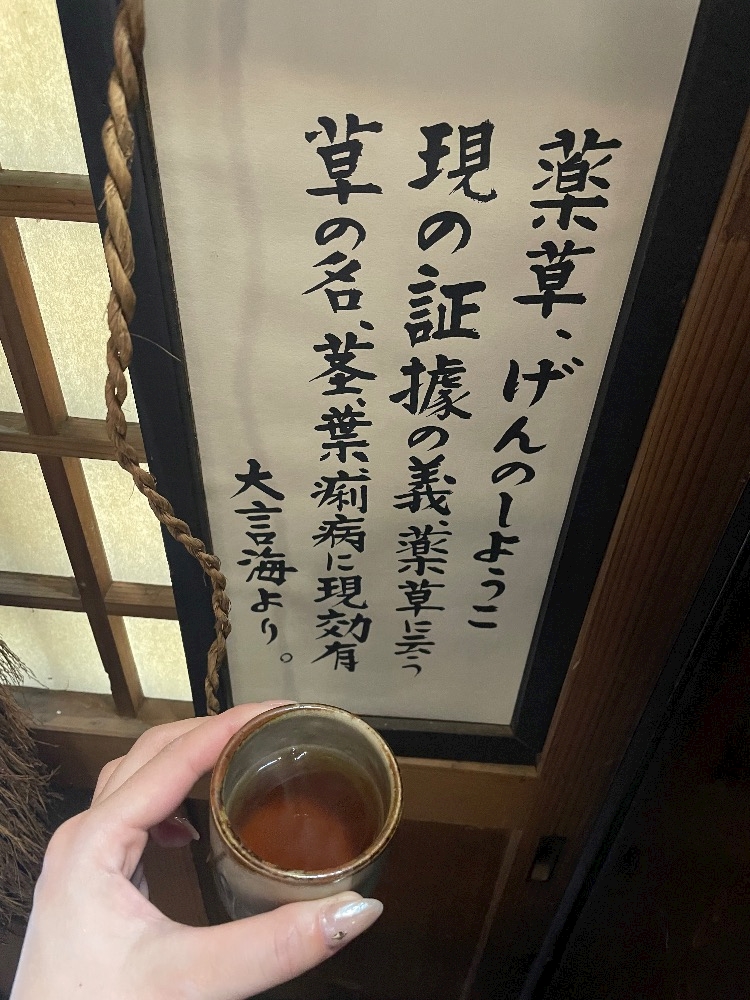 薬草、げんのしょうこ
現の証據の義、薬草に云う
草の名、茎、葉痢病に現効有
大言海より。